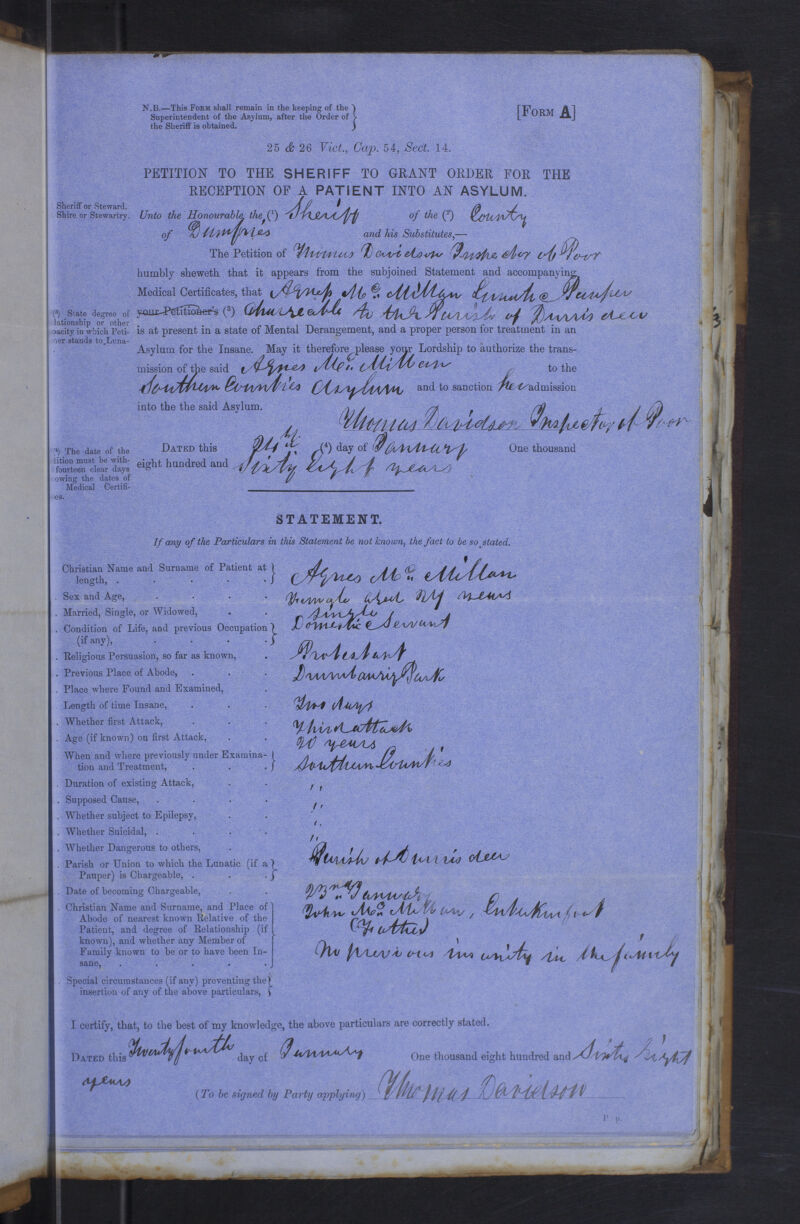 N.B.—This Form shall remain in the keeping of the
Superintendent of the Asylum, after the Order of
the Sheriff is obtained.
[Form A]
25 & 26 Vict., Cap. 54, Sect. 14.
PETITION TO THE SHERIFF TO GRANT ORDER FOR THE
RECEPTION OF A PATIENT INTO AN ASYLUM.
Sheriff or Steward.
Shire or Stewartry.
Unto the Honourable the (¹) Sheriff of the (²) County
of Dumfries and his Substitutes,—
The Petition of Thomas Davidson Inspector of Poor
humbly sheweth that it appears from the subjoined Statement and accompanying
Medical Certificates, that Agnes Mc Millan Lunatic Pauper
(³) State degree of
lationship or other
pacity in which Peti-
ner stands to Luna-
your Petitioner's (³) Chargeable to the Parish of Durrisdeer
is at present in a state of Mental Derangement, and a proper person for treatment in an
Asylum for the Insane. May it therefore please your Lordship to authorize the trans-
mission of the said Agnes Mc Millan to the
Southern Counties Asylum and to sanction her admission
into the the said Asylum.
Thomas Davidson Inspector of Poor
(⁴) The date of the
tition must be with-
fourteen clear days
owing the dates of
Medical Certifi-
es.
Dated this (⁴) day of January One thousand
eight hundred and Sixty Eight years
STATEMENT.
If any of the Particulars in this Statement be not known, the fact to be so stated.
Christian Name and Surname of Patient at
length, . Agnes Mc Millan
Sex and Age, Female aged years
Married, Single, or Widowed, Single
Condition of Life, and previous Occupation
(if any), Domestic Servant
Religious Persuasion, so far as known, Protestant
Previous Place of Abode, Drumlanrig Park
Place where Found and Examined,
Length of time Insane, Two days
Whether first Attack, Third attack
Age (if known) on first Attack, 20 years
When and where previously under Examina-
tion and Treatment, Southern Counties
Duration of existing Attack, "
Supposed Cause, "
Whether subject to Epilepsy, "
Whether Suicidal, "
Whether Dangerous to others,
Parish or Union to which the Lunatic (if a
Pauper) is Chargeable, Parish of Durrisdeer
Date of becoming Chargeable, 23rd January
Christian Name and Surname, and Place of
Abode of nearest known Relative of the
Patient, and degree of Relationship (if
known), and whether any Member of
Family known to be or to have been In-
sane, John Mc Millan, Enterkinfoot
(Father)
No previous insanity in the family
Special circumstances (if any) preventing the
insertion of any of the above particulars,
I certify, that, to the best of my knowledge, the above particulars are correctly stated.
Dated this Twenty fourth day of January One thousand eight hundred and Sixty Eight
years
(To be signed by Party applying) Thomas Davidson